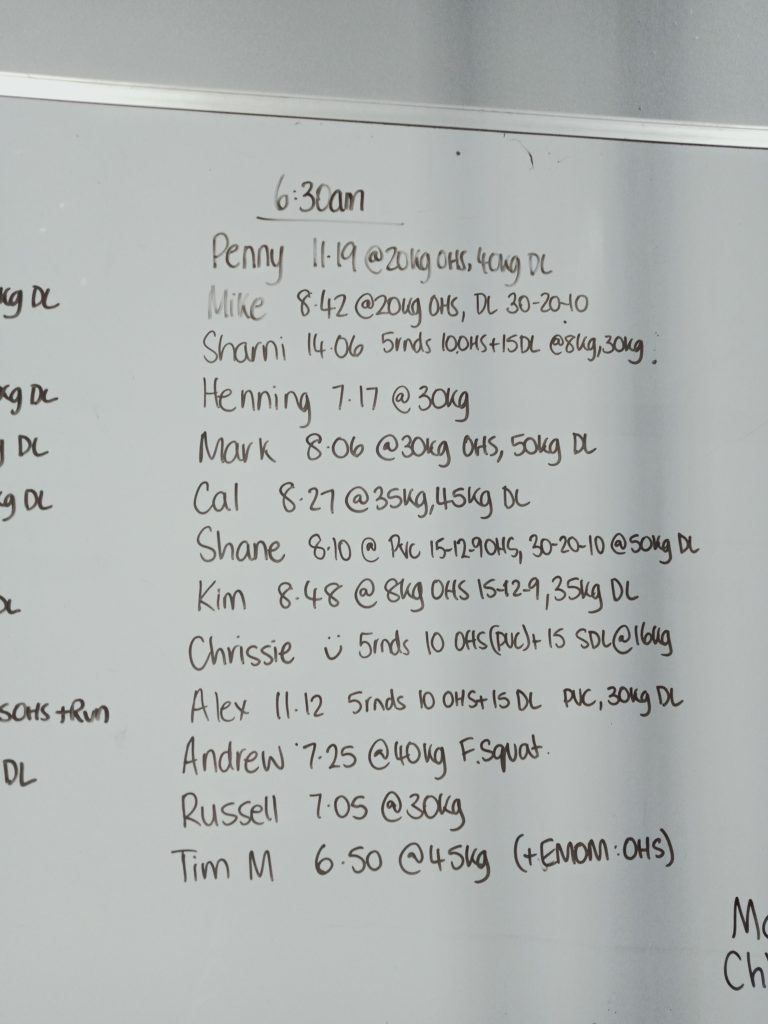 6:30am
Penny 11.19 @20kg OHS, 40kg DL
kg DL
Mike 8.42 @20kg OHS, DL 30-20-10
Sharni 14.06 5rnds 10OHS+15DL @8kg,30kg.
kg DL
Henning 7.17 @30kg
DL
Mark 8.06 @30kg OHS, 50kg DL
kg DL
Cal 8.27 @35kg,45kg DL
Shane 8.10 @ PVC 15-12-9OHS, 30-20-10 @50kg DL
DL
Kim 8.48 @ 8kg OHS 15-12-9, 35kg DL
Chrissie ü 5rnds 10 OHS(PVC)+ 15 SDL@16kg
SOHS +Run
Alex 11.12 5rnds 10 OHS+15 DL PVC, 30kg DL
DL
Andrew 7.25 @40kg F.Squat.
Russell 7.05 @30kg
Tim M 6.50 @45kg (+EMOM:OHS)